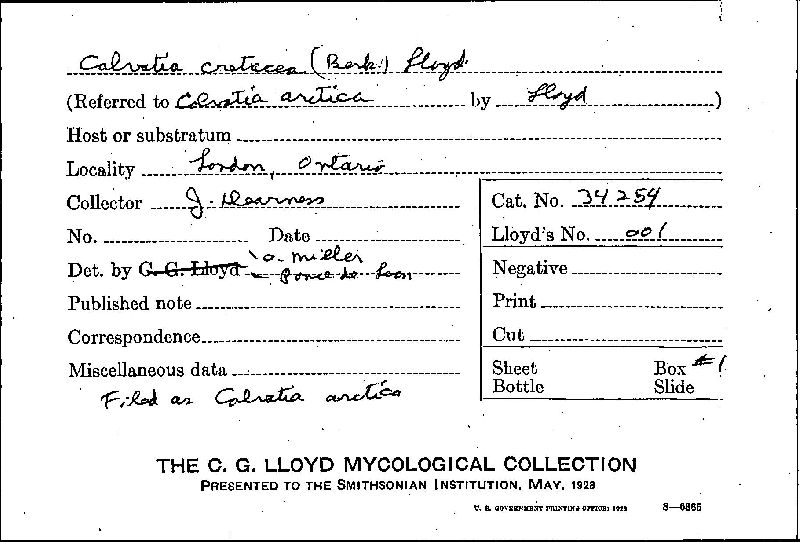 Calvatia cretacea (Berk.) Lloyd.
(Referred to Calvatia arctica by Lloyd)
Host or substratum
Locality London, Ontario
Collector J. Dearness
No. Date
Det. by C. G. Lloyd O. Miller
Ponce de Leon
Published note
Correspondence
Miscellaneous data
Filed as Calvatia arctica
Cat. No. 34254
Lloyd's No. 001
Negative
Print
Cut
Sheet Box #1
Bottle Slide
THE C. G. LLOYD MYCOLOGICAL COLLECTION
PRESENTED TO THE SMITHSONIAN INSTITUTION, MAY, 1928
U. S. GOVERNMENT PRINTING OFFICE: 1928 8—6865